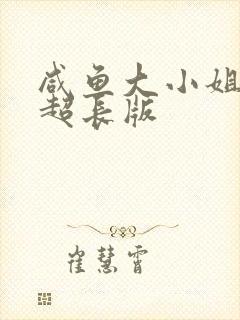 咸鱼大小姐
超长版
崔慧霄